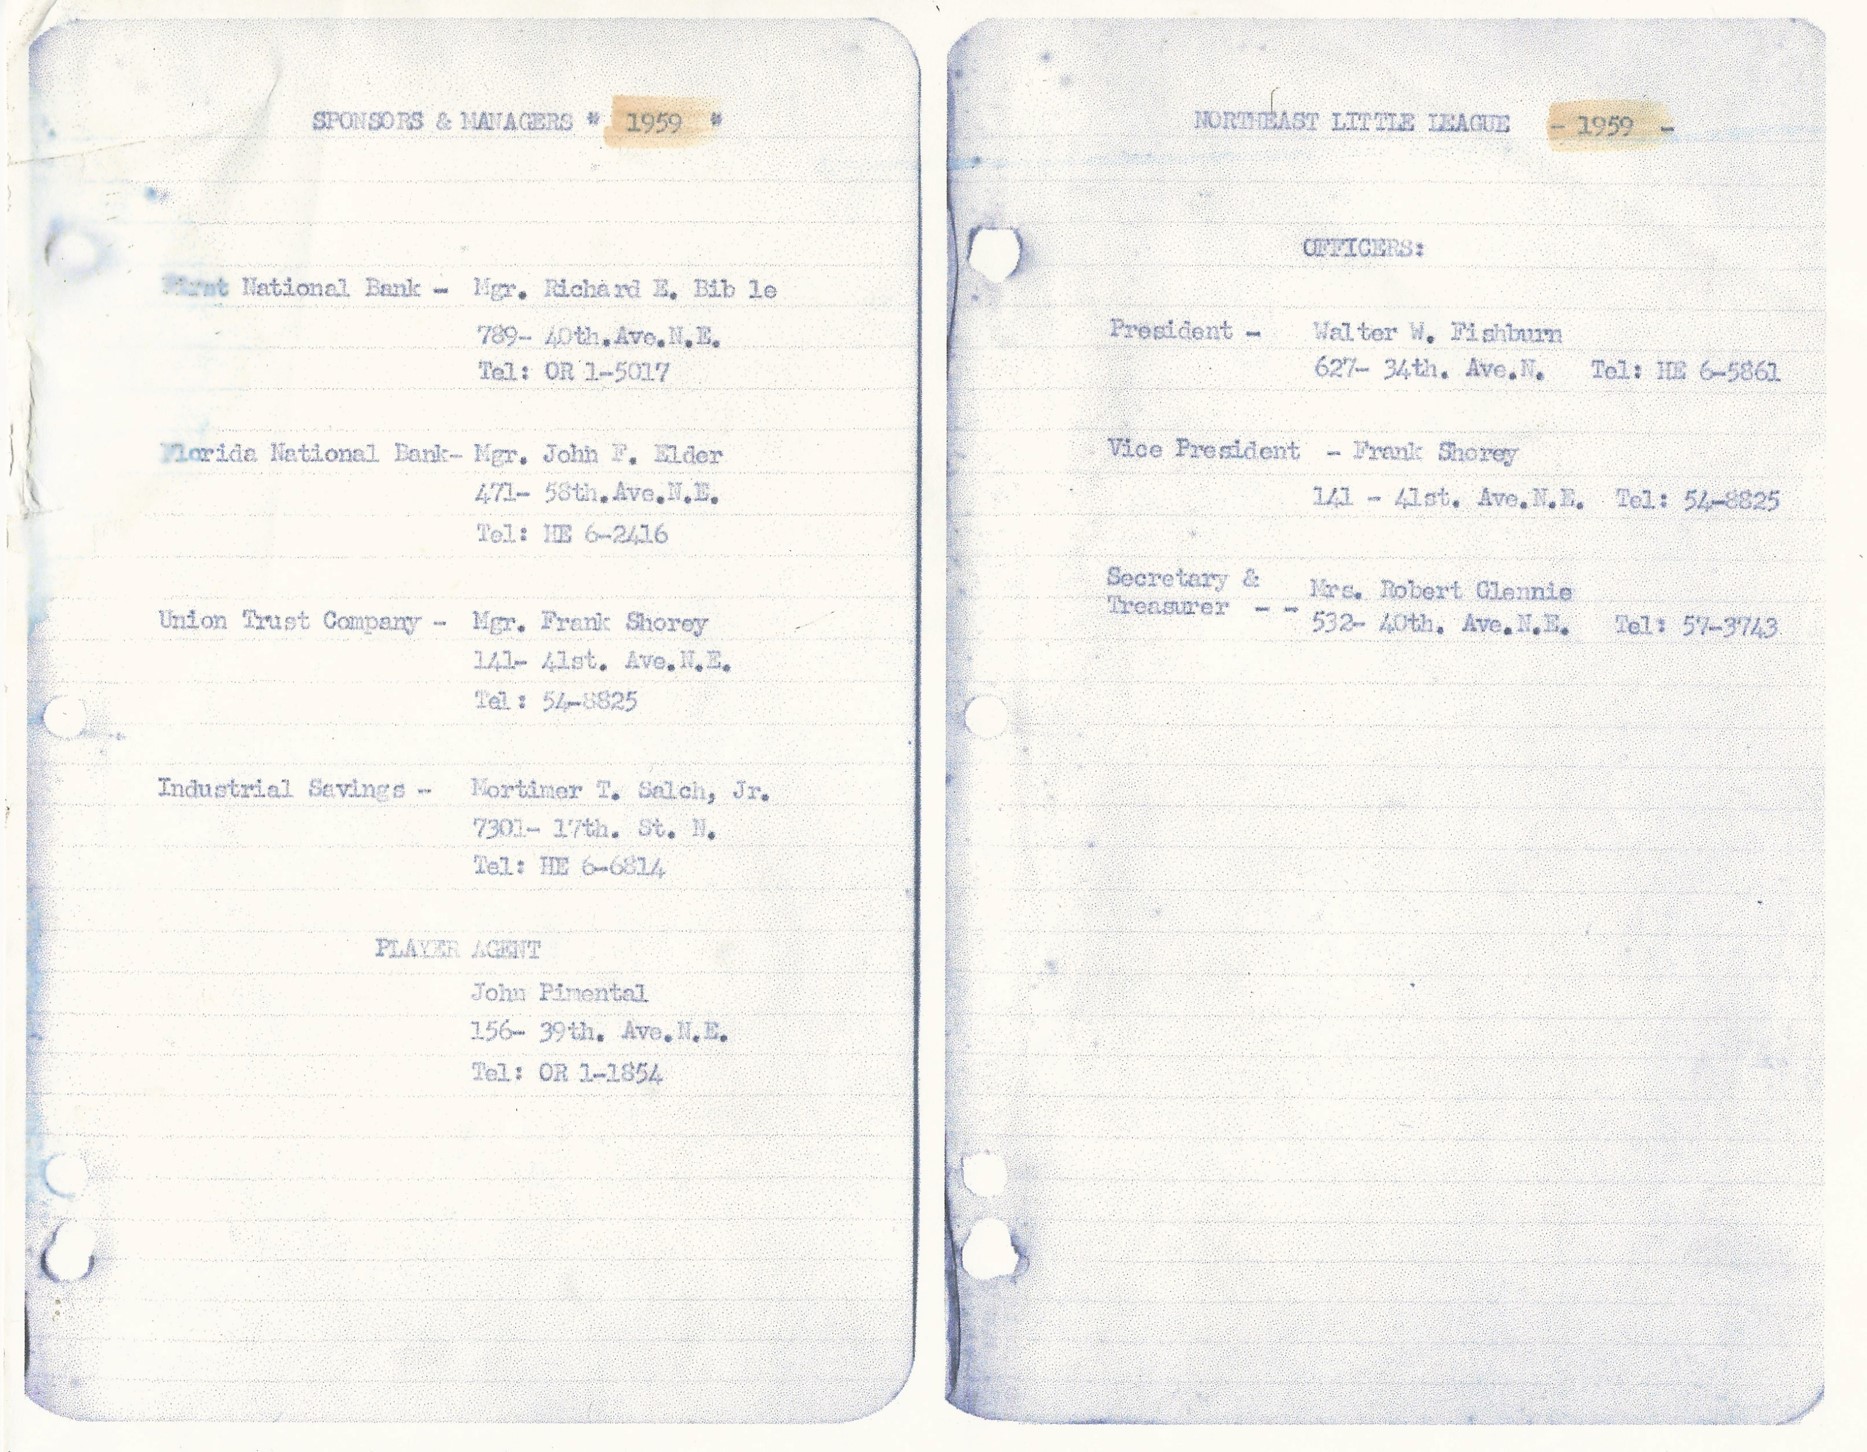 SPONSORS & MANAGERS " 1959 "
First National Bank - Mgr. Richard E. Bib le
789- 40th.Ave.N.E.
Tel: OR 1-5017
Florida National Bank- Mgr. John F. Elder
471- 58th.Ave.N.E.
Tel: HE 6-2416
Union Trust Company - Mgr. Frank Shorey
141- 41st. Ave.N.E.
Tel: 54-8825
Industrial Savings - Mortimer T. Salch, Jr.
7301- 17th. St. N.
Tel: HE 6-6814
PLAYER AGENT
John Pimental
156- 39th. Ave.N.E.
Tel: OR 1-1854
NORTHEAST LITTLE LEAGUE - 1959 -
OFFICERS:
President - Walter W. Fishburn
627- 34th. Ave.N. Tel: HE 6-5861
Vice President - Frank Shorey
141 - 41st. Ave.N.E. Tel: 54-8825
Secretary &
Treasurer - - Mrs. Robert Glennie
532- 40th. Ave.N.E. Tel: 57-3743